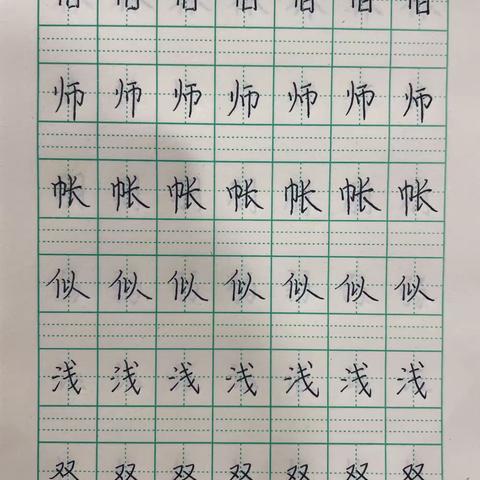 师师师师师师师
帐帐帐帐帐帐帐
似似似似似似似
浅浅浅浅浅浅浅
双双双双双双双